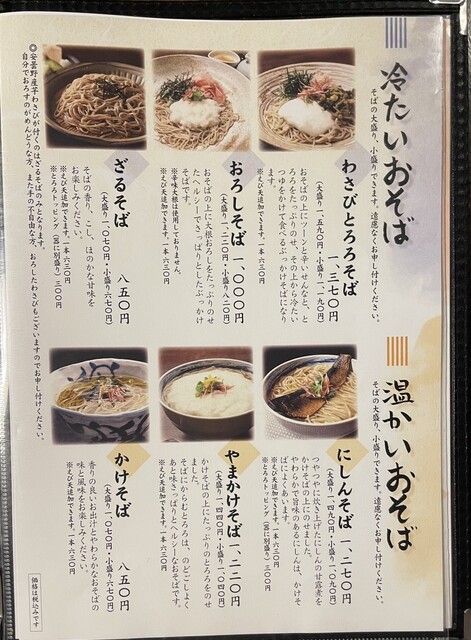 冷たいおそば
そばの大盛り、小盛りできます。遠慮なくお申し付けください。
わさびとろろそば 一、三七〇円
（大盛り一、五九〇円・小盛り一、一九〇円）
おそばの上にツーンと辛いせんなと、と
ろろをたっぷりのせ、その上から冷たい
つゆをかけて食べるぶっかけそばになり
ます。
※えび天追加できます。一本六三〇円
おろしそば 一、〇〇〇円
（大盛り一、二二〇円・小盛り八二〇円）
おそばの上に大根おろしをたっぷりのせ
たヘルシーでさっぱりとしたぶっかけ
そばです。
※辛味大根は使用しておりません。
※えび天追加できます。一本六三〇円
ざるそば 八五〇円
（大盛り一、〇七〇円・小盛り六七〇円）
そばの香り、こし、ほのかな甘味を
お楽しみください。
※えび天追加できます。一本六三〇円
※とろろトッピング（宮に別盛り）三〇〇円
◎安曇野産芋わさびが付くのはざるそばのみとなります。
自分でおろすのがめんどうな方、また手の不自由な方、おろしたわさびもございますのでお申し付けください。
温かいおそば
そばの大盛り、小盛りできます。遠慮なくお申し付けください。
にしんそば 一、二七〇円
（大盛り一、四九〇円・小盛り一、〇九〇円）
つやつやに炊き上げたにしんの甘露煮を
かけそばの上にのせました。
やわらかで旨味のあるにしんは、かけそ
ばによくあいます。
※えび天追加できます。一本六三〇円
やまかけそば 一、二二〇円
（大盛り一、四四〇円・小盛り一、〇四〇円）
かけそばの上にたっぷりのとろろをのせ
ました。
そばにからむとろろは、のどごしよく
あと味さっぱりとヘルシーなおそばです。
※えび天追加できます。一本六三〇円
かけそば 八五〇円
（大盛り一、〇七〇円・小盛り六七〇円）
香りの良いお出汁とやわらかなおそばの
味と風味をお楽しみください。
※えび天追加できます。一本六三〇円
価格は税込みです